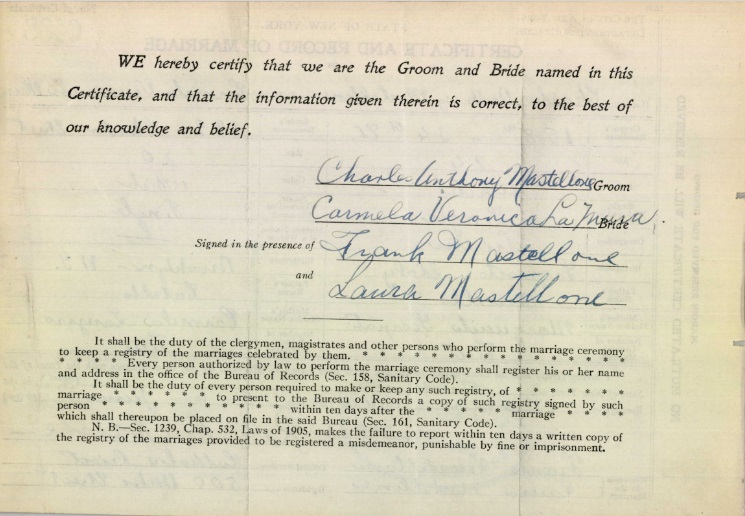 WE hereby certify that we are the Groom and Bride named in this
Certificate, and that the information given therein is correct, to the best of
our knowledge and belief.
Charles Anthony Mastellone Groom
Carmela Veronica La Mura. Bride
Signed in the presence of Frank Mastellone
and Laura Mastellone
It shall be the duty of the clergymen, magistrates and other persons who perform the marriage ceremony
to keep a registry of the marriages celebrated by them. * * * * * * * * * * * * * *
* * * * Every person authorized by law to perform the marriage ceremony shall register his or her name
and address in the office of the Bureau of Records (Sec. 158, Sanitary Code).
It shall be the duty of every person required to make or keep any such registry, of * * * * * *
marriage * * * * * * to present to the Bureau of Records a copy of such registry signed by such
person * * * * * * * * * * * within ten days after the * * * * * marriage * * * *
which shall thereupon be placed on file in the said Bureau (Sec. 161, Sanitary Code).
N. B.—Sec. 1239, Chap. 532, Laws of 1905, makes the failure to report within ten days a written copy of
the registry of the marriages provided to be registered a misdemeanor, punishable by fine or imprisonment.